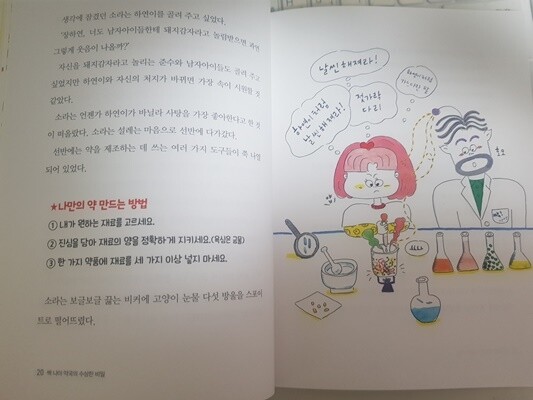 생각에 잠겼던 소라는 하연이를 골려 주고 싶었다.
'장하연, 너도 남자아이들한테 돼지감자라고 놀림받으면 과연
그렇게 웃음이 나올까?'
자신을 돼지감자라고 놀리는 준수와 남자아이들도 골려 주고
싶었지만 하연이와 자신의 처지가 바뀌면 가장 속이 시원할 것
같았다.
소라는 언젠가 하연이가 바닐라 사탕을 가장 좋아한다고 한 것
이 떠올랐다. 소라는 설레는 마음으로 선반에 다가갔다.
선반에는 약을 제조하는 데 쓰는 여러 가지 도구들이 죽 나열
되어 있었다.
★나만의 약 만드는 방법
① 내가 원하는 재료를 고르세요.
② 진심을 담아 재료의 양을 정확하게 지키세요.(욕심은 금물)
③ 한 가지 약품에 재료를 세 가지 이상 넣지 마세요.
소라는 보글보글 끓는 비커에 고양이 눈물 다섯 방울을 스포이
트로 떨어뜨렸다.
20
날씬해져라!
하연이처럼
날씬해져라!
젓가락
다리